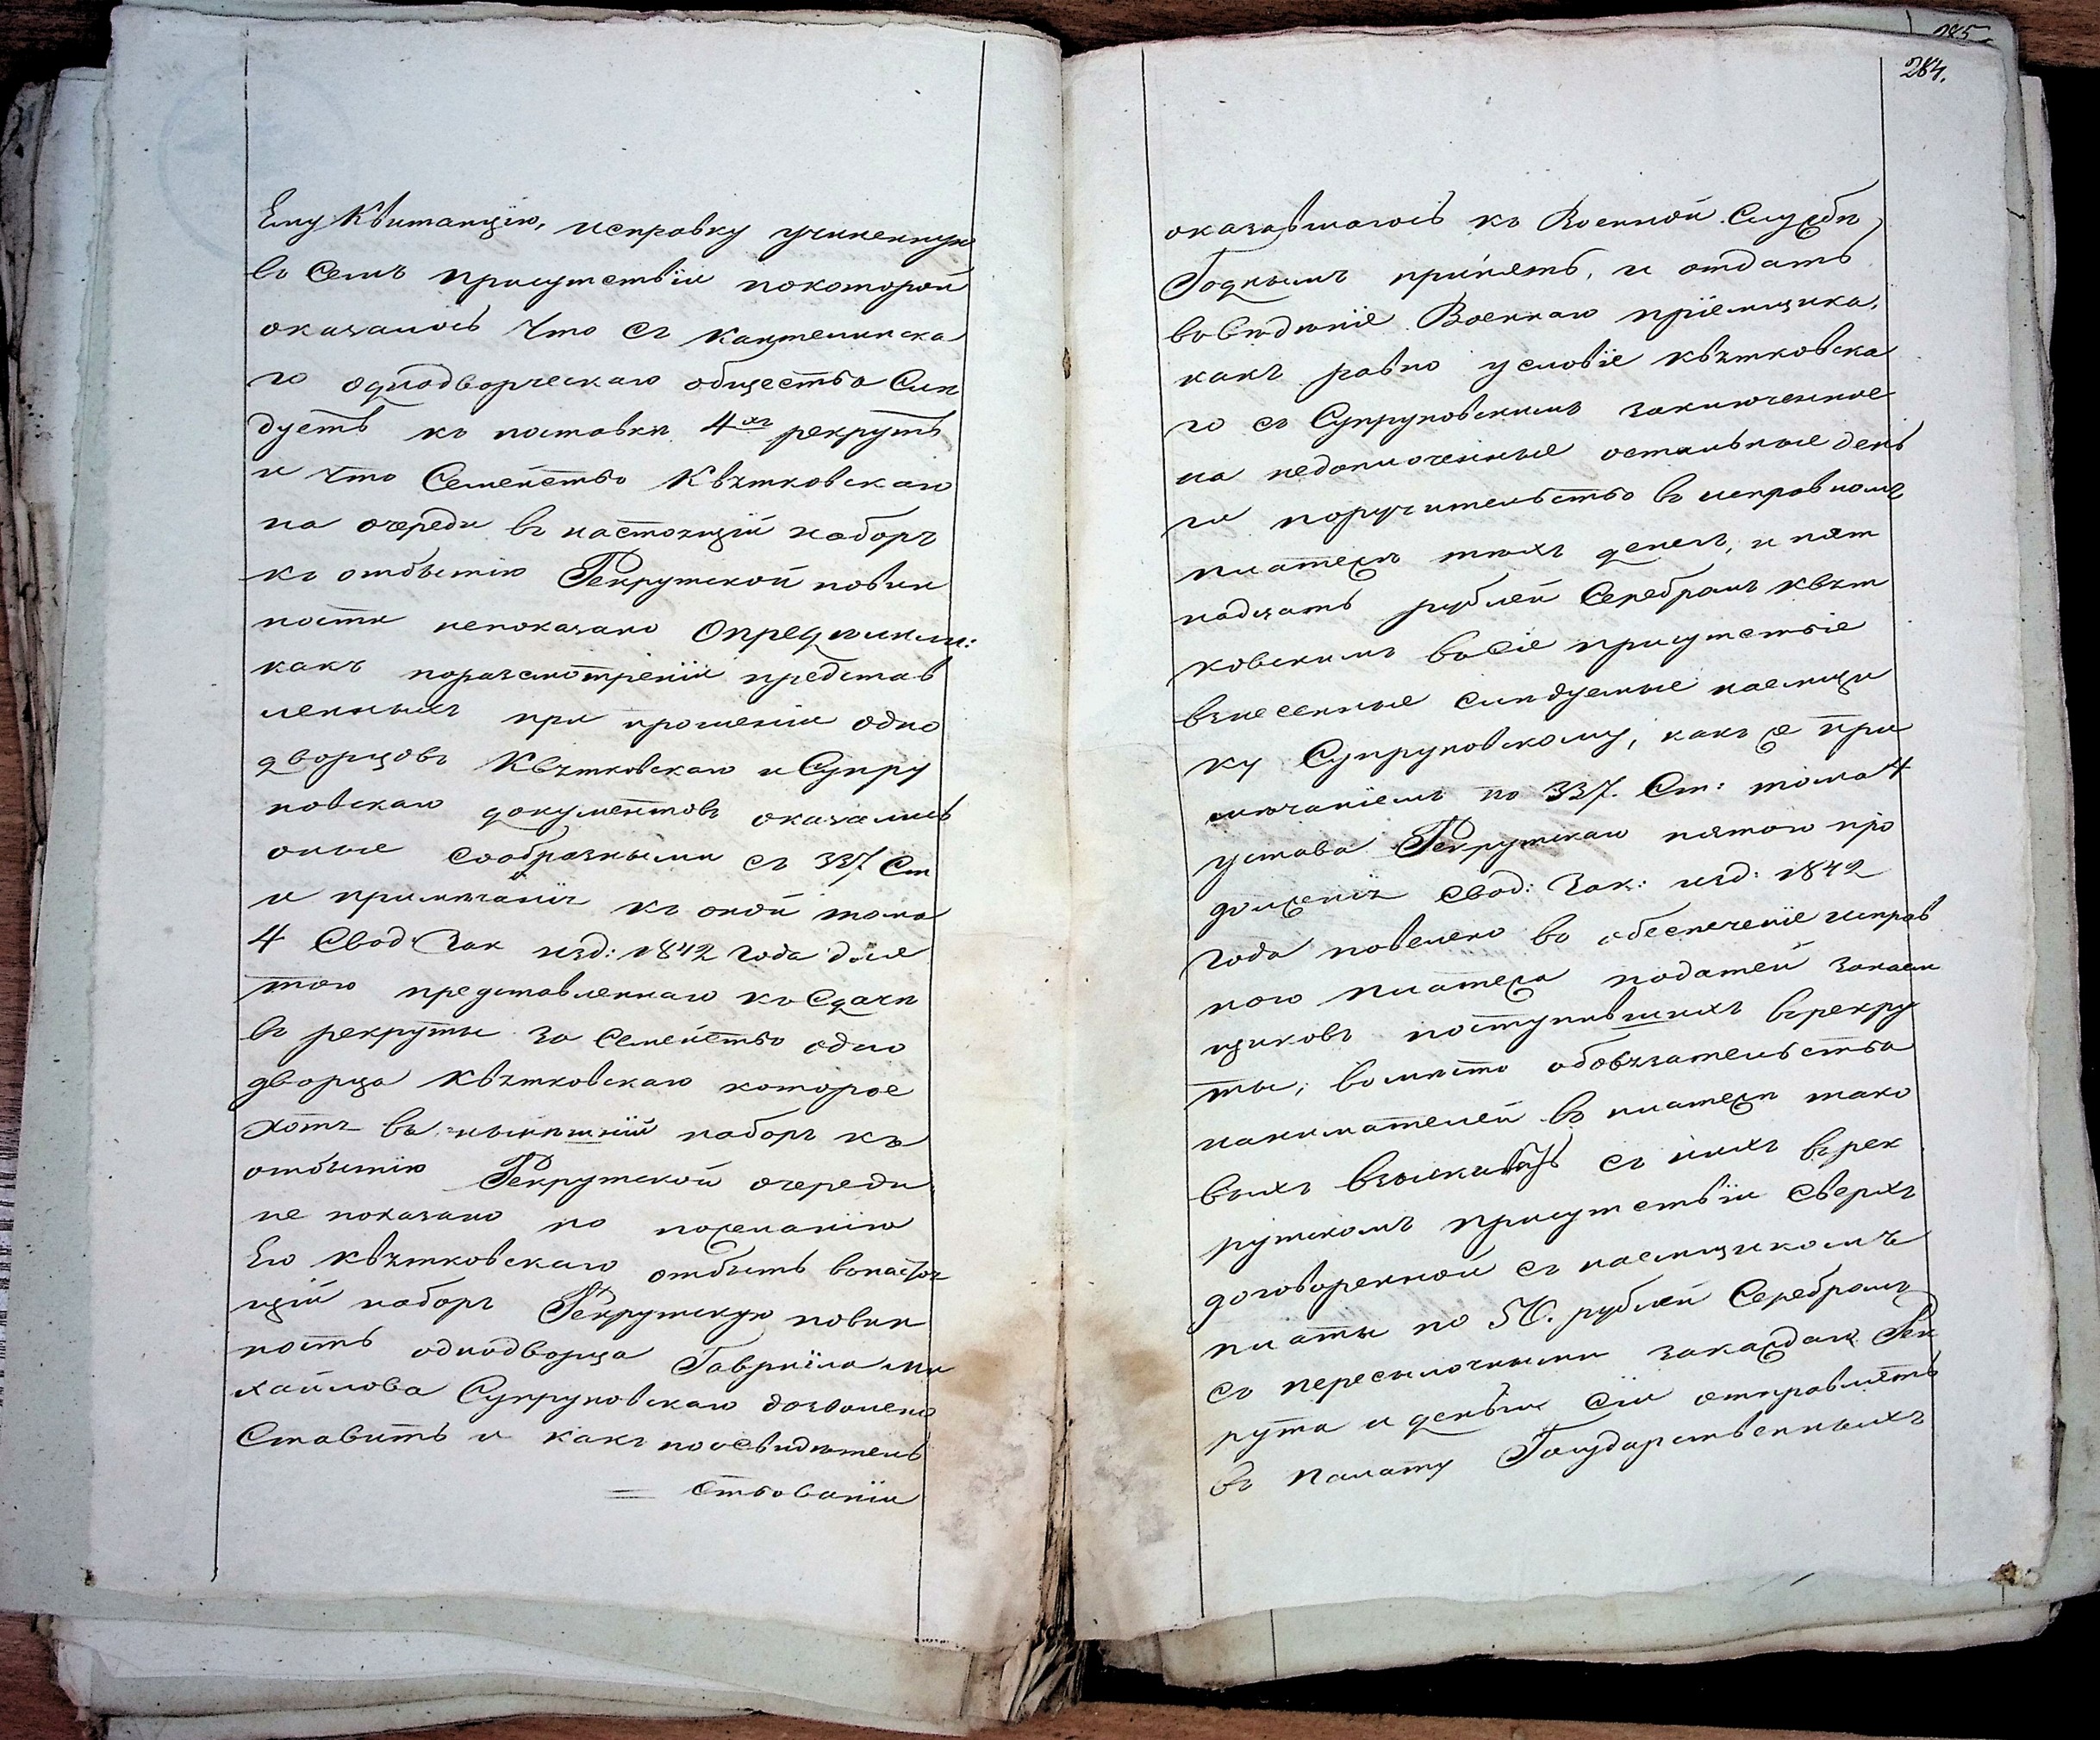 Ему Квитанцію, исправку учиненную
въ Семъ присутствіи покоторой
оказалось Что съ Кантелинска
го однодворческаго общества Слѣ
дуетъ къ поставкѣ 4хъ рекрутъ
и что Семейство Квятковскаго
на очереди въ настоящій наборъ
къ отбытію Рекрутской повин
ности непоказано Опредѣлили:
какъ поразсмотреніи представ
ленныхъ при прошеніи одно
дворцовъ Квятковскаго и Супру
новскаго документовъ оказались
оные сообразными съ 337 Ст
и примѣчанія къ оной тома
4 Свод: Зак изд: 1842 года для
того представленнаго къ Сдачѣ
въ рекруты за Семейство одно
дворца Квятковскаго которое
хотя въ нынѣшній наборъ къ
отбытію Рекрутской очереди
не показано но пожеланію
Его Квятковскаго отбыть внастоя
щій наборъ Рекрутскую повин
ность однодворца Гавріила Ми
хайлова Супруновскаго дозволено
Ставить и какъ поосвидѣтель
= ствованіи
285
284.
оказавшагось къ Военной Службѣ
Годнымъ принять, и отдать
въвѣденіе Военнаго пріемщика,
какъ равно условіе Квятковска
го съ Супруновскимъ заключенное
на недоплоченные остальные день
ги поручительство въ исправномъ
платежѣ тѣхъ денегъ, и пят
надцать рублей Серебромъ Квят
ковскимъ въ сіе присутствіе
взнесенные слѣдуемые наемщи
ку Супруновскому, какъ же при
мѣчаніемъ по 337. Ст: тома 4
устава Рекрутскаго пятого про
долженія Свод: Зак: изд: 1842
года повелено въ обеспеченіе исправ
ного платежа податей занаем
щиковъ поступившихъ върекру
ты, вомѣсто обовязательства
нанимателей въ платежѣ тако
выхъ взыскивать съ нихъ върек
рутскомъ присутствіи сверхъ
договоренной съ наемщикомъ
платы по 50. рублей Серебромъ
съ пересылочными закаждаго Рек
рута и деньги сіи отправлять
въ Палату Государственныхъ